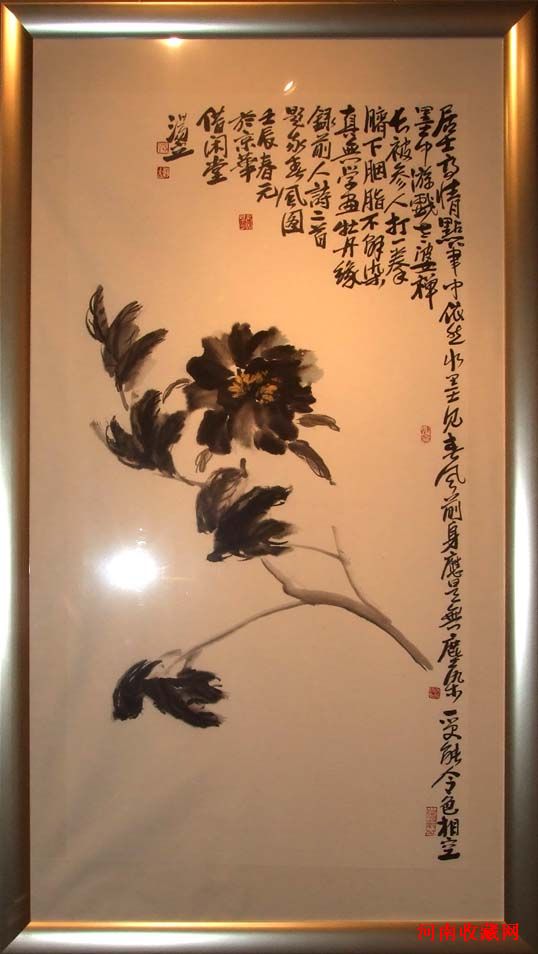 居士高情點筆中依然水墨見春風前身應是無塵染一笑能令色相空
墨中游戲老婆禪
長被參人打一拳
臍下胭脂不解染
真無學畫牡丹緣
錄前人詩二首
是為春風圖
壬辰春元
於京華
借閑堂
河南收藏网